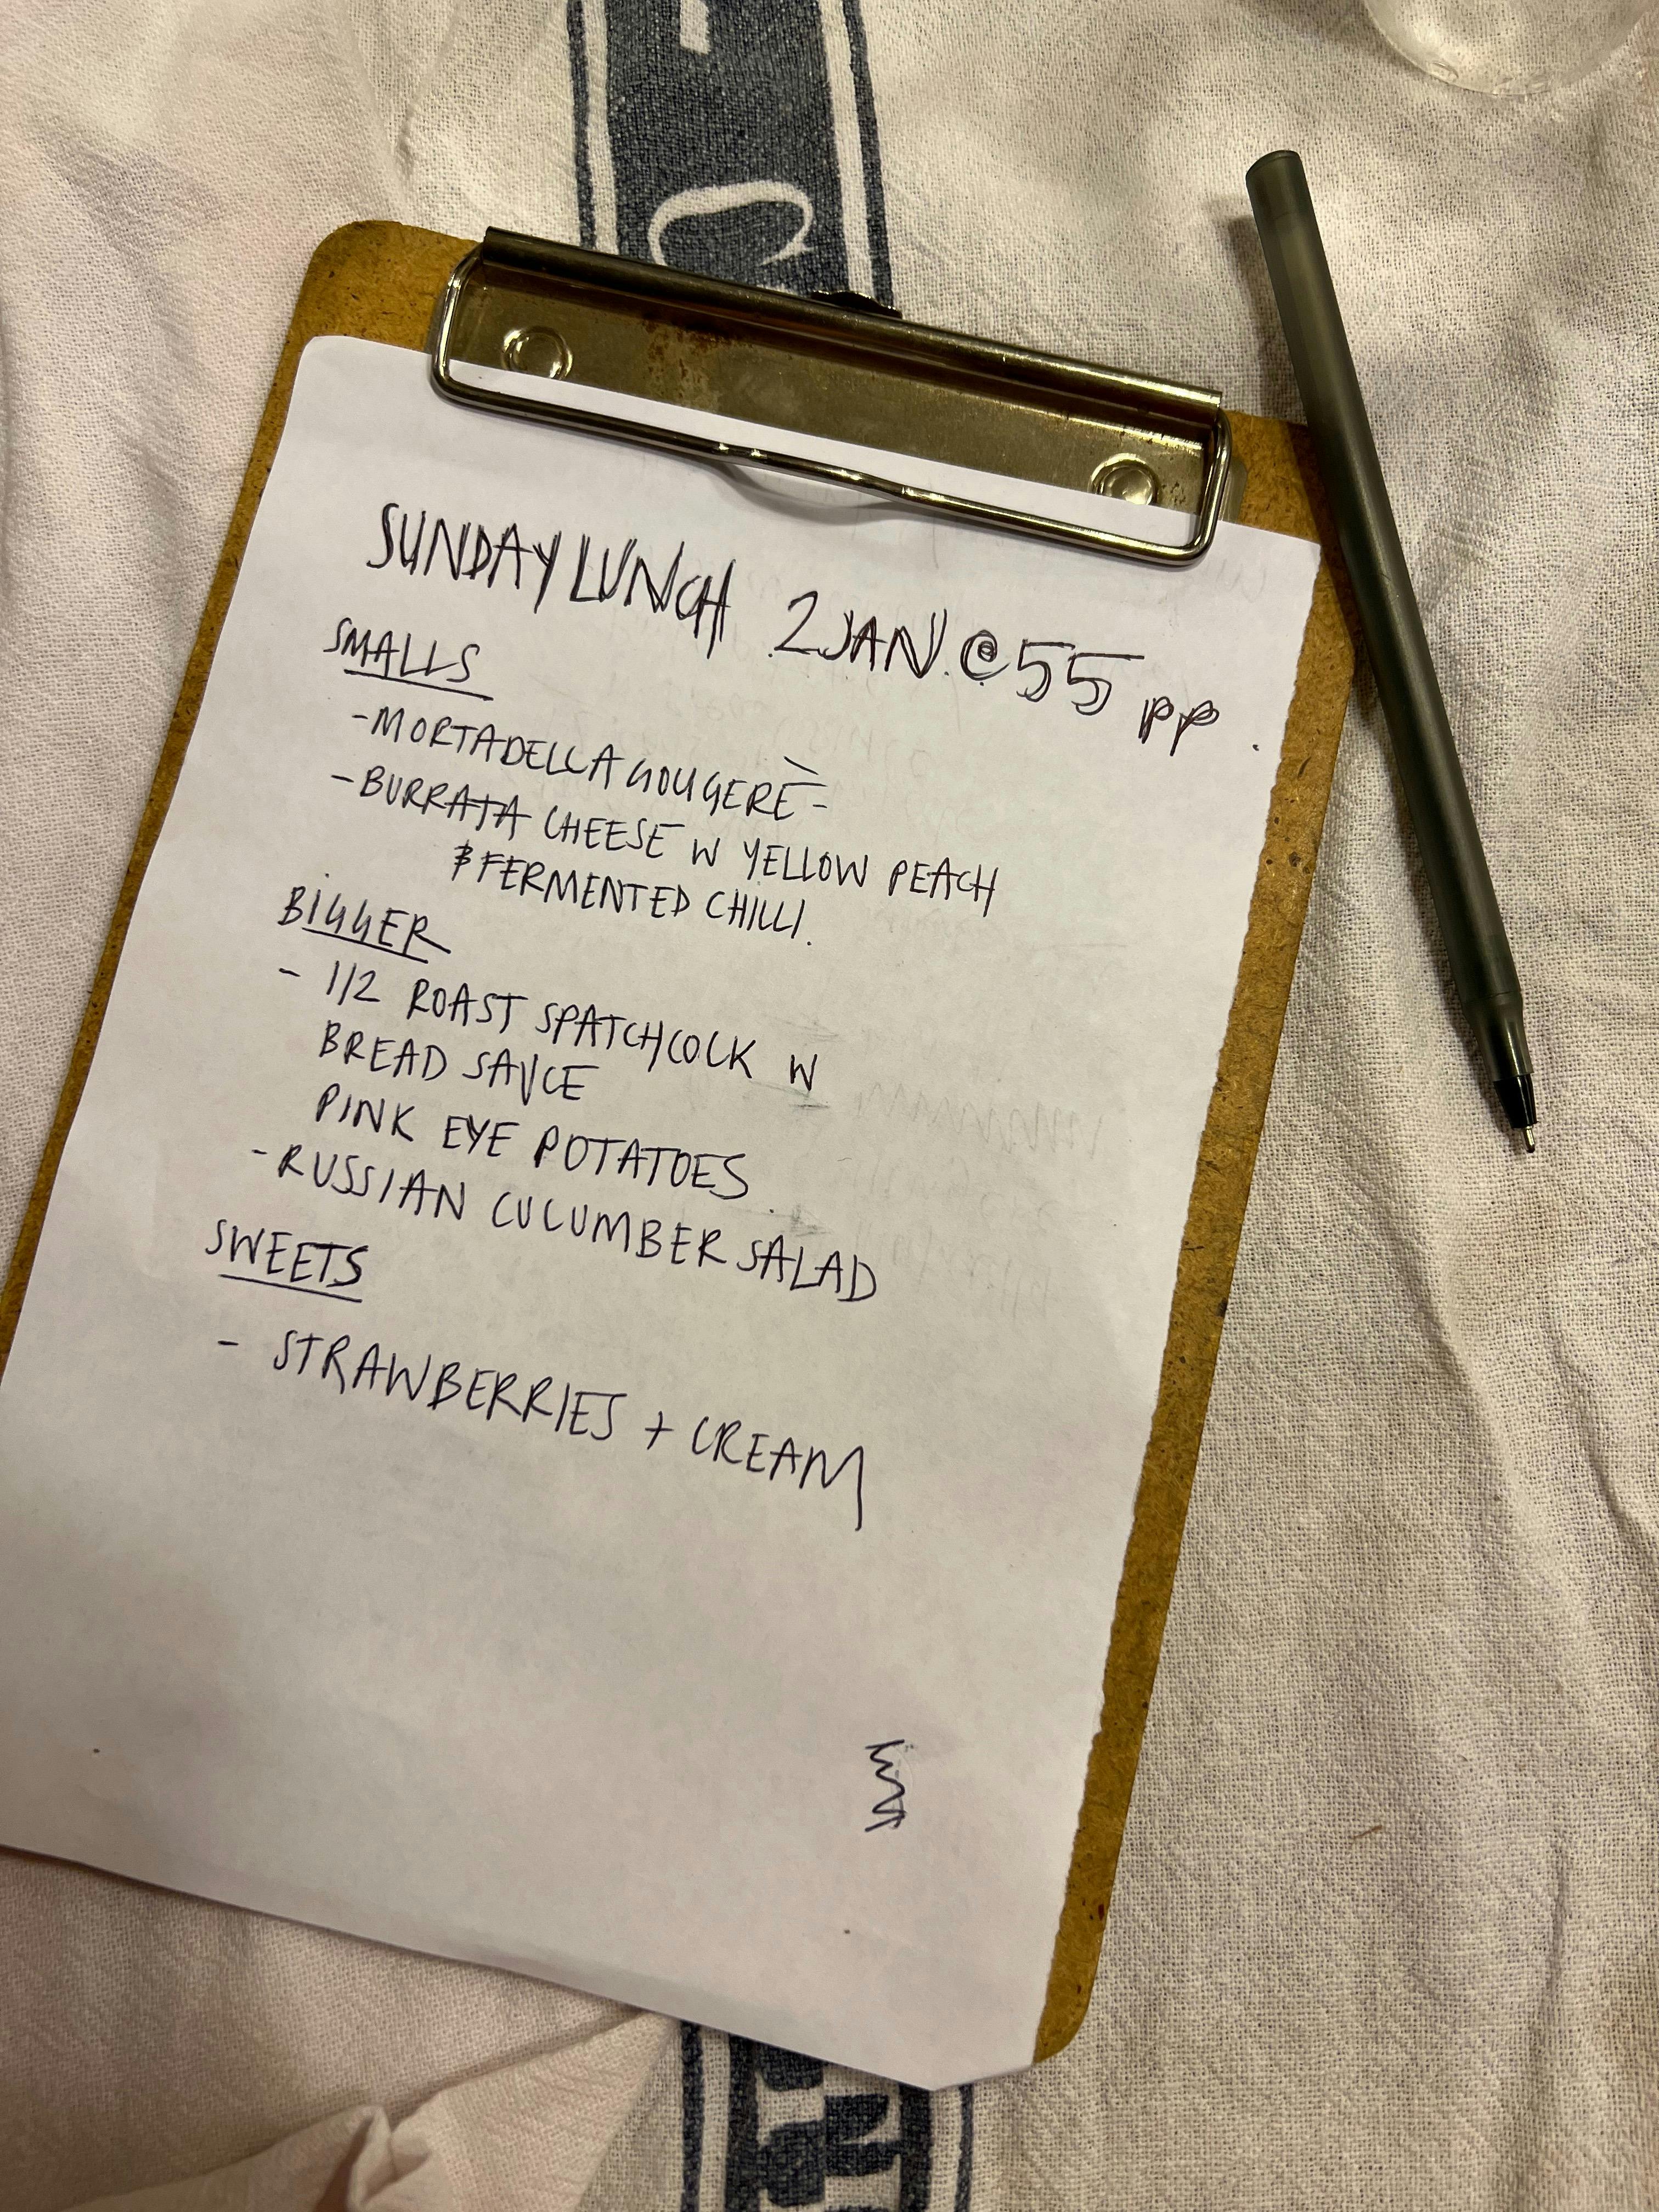 SUNDAY LUNCH 2 JAN. @ 55 pp.
SMALLS
- MORTADELLA GOUGERÈ -
- BURRATA CHEESE W YELLOW PEACH
& FERMENTED CHILLI.
BIGGER
- 1/2 ROAST SPATCHCOCK W
BREAD SAUCE
PINK EYE POTATOES
- RUSSIAN CUCUMBER SALAD
SWEETS
- STRAWBERRIES + CREAM